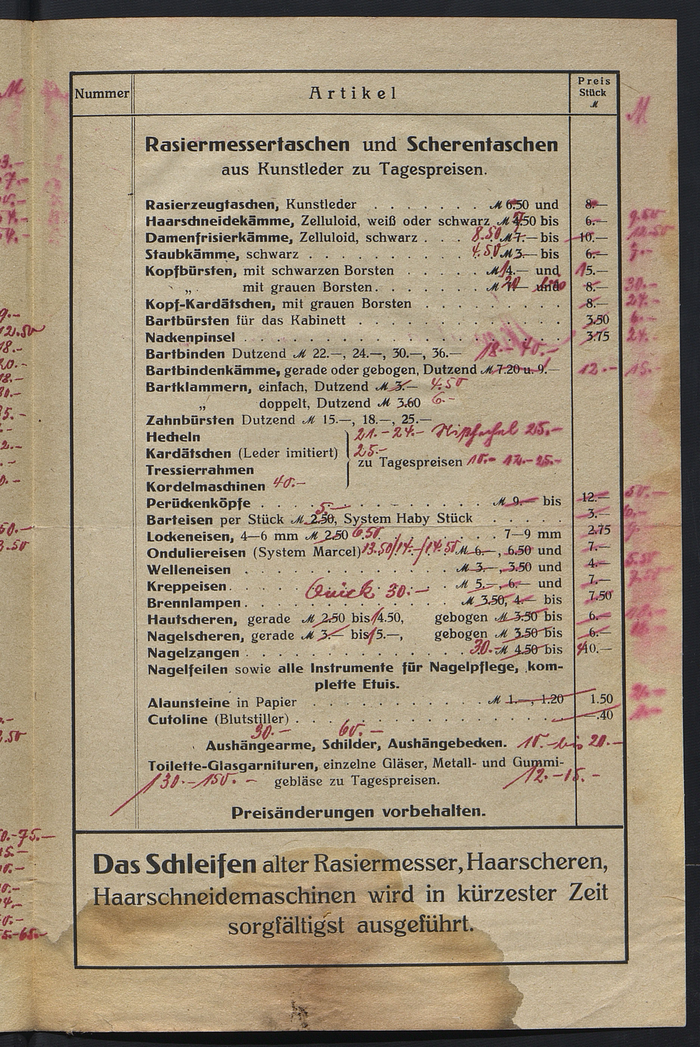 Nummer
Artikel
Preis
Stück
M
M
Rasiermessertaschen und Scherentaschen
aus Kunstleder zu Tagespreisen.
Rasierzeugtaschen, Kunstleder . . . . . . . M 6.50 und 8.—
Haarschneidekämme, Zelluloid, weiß oder schwarz M 4.50 bis 6.— 9.50
Damenfrisierkämme, Zelluloid, schwarz . . . 8.50 M 7.— bis 10.— 12.50
Staubkämme, schwarz . . . . . . . . . 4.50 M 3.— bis 6.— 9.—
Kopfbürsten, mit schwarzen Borsten . . . . . M 14.— und 15.—
„ mit grauen Borsten . . . . . . M und 8.— 30.—
Kopf-Kardätschen, mit grauen Borsten . . . . . . . . 8.— 24.—
Bartbürsten für das Kabinett . . . . . . . . . . . 3.50 6.—
Nackenpinsel . . . . . . . . . . . . . . . . . 3.75 24.—
Bartbinden Dutzend M 22.—, 24.—, 30.—, 36.— 18.— 40.—
Bartbindenkämme, gerade oder gebogen, Dutzend M 7.20 u. 9.— 12.— 15.—
Bartklammern, einfach, Dutzend M 3.— 4.50
„ doppelt, Dutzend M 3.60 6.—
Zahnbürsten Dutzend M 15.—, 18.—, 25.—
Hecheln 21.— 24.— 25.—
Kardätschen (Leder imitiert) 25.—
Tressierrahmen zu Tagespreisen 10.— 12.— 25.—
Kordelmaschinen 40.—
Perückenköpfe . . . . . . . . . . . . . M 9.— bis 12.— 50.—
Barteisen per Stück M 2.50, System Haby Stück . . . . . 3.— 6.—
5.—
Lockeneisen, 4—6 mm M 2.50 6.50 7—9 mm 2.75 9.—
Onduliereisen (System Marcel) 13.50/14.—/14.50 M 6.—, 6.50 und 7.—
Welleneisen . . . . . . . . . . . M 3.—, 3.50 und 4.— 5.50
Kreppeisen . . . . . . . . . . . M 5.—, 6.— und 7.— 7.50
Quick 30.—
Brennlampen . . . . . . . . . . . M 3.50, 4.— bis 7.50
Hautscheren, gerade M 2.50 bis 14.50, gebogen M 3.50 bis 6.— 18.—
Nagelscheren, gerade M 3.— bis 15.—, gebogen M 3.50 bis 6.— 16.—
Nagelzangen . . . . . . . . . . . . 30.— M 4.50 bis 40.—
Nagelfeilen sowie alle Instrumente für Nagelpflege, kom-
plette Etuis.
Alaunsteine in Papier . . . . . . . . M 1.—, 1.20 1.50
Cutoline (Blutstiller) . . . . . . . . . . . . . —.40
30.— 60.—
Aushängearme, Schilder, Aushängebecken. 10.— bis 20.—
Toilette-Glasgarnituren, einzelne Gläser, Metall- und Gummi-
130.— 150.— gebläse zu Tagespreisen. 12.—15.—
Preisänderungen vorbehalten.
Das Schleifen alter Rasiermesser, Haarscheren,
Haarschneidemaschinen wird in kürzester Zeit
sorgfältigst ausgeführt.